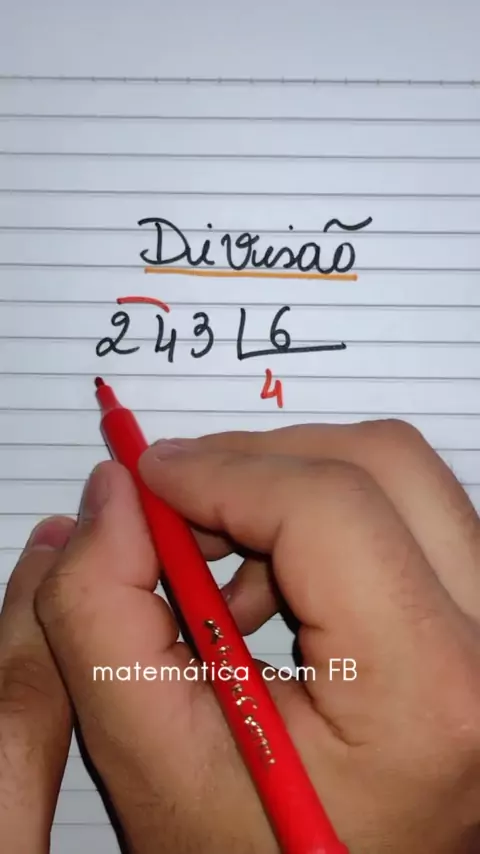 Divisão
243 6
4
matemática com FB